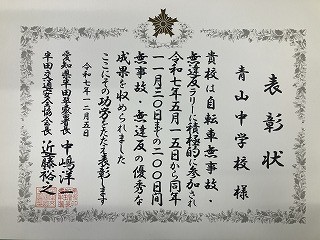 表彰状
青山中学校 様
貴校は自転車無事故・
無違反ラリーに積極的に参加され
令和七年五月一五日から同年
一一月三〇日までの二〇〇日間
無事故・無違反の優秀な
成果を収められました
ここにその功労をたたえ表彰します
令和七年一二月五日
愛知県半田警察署長 中嶋洋一
半田交通安全協会会長 近藤裕之